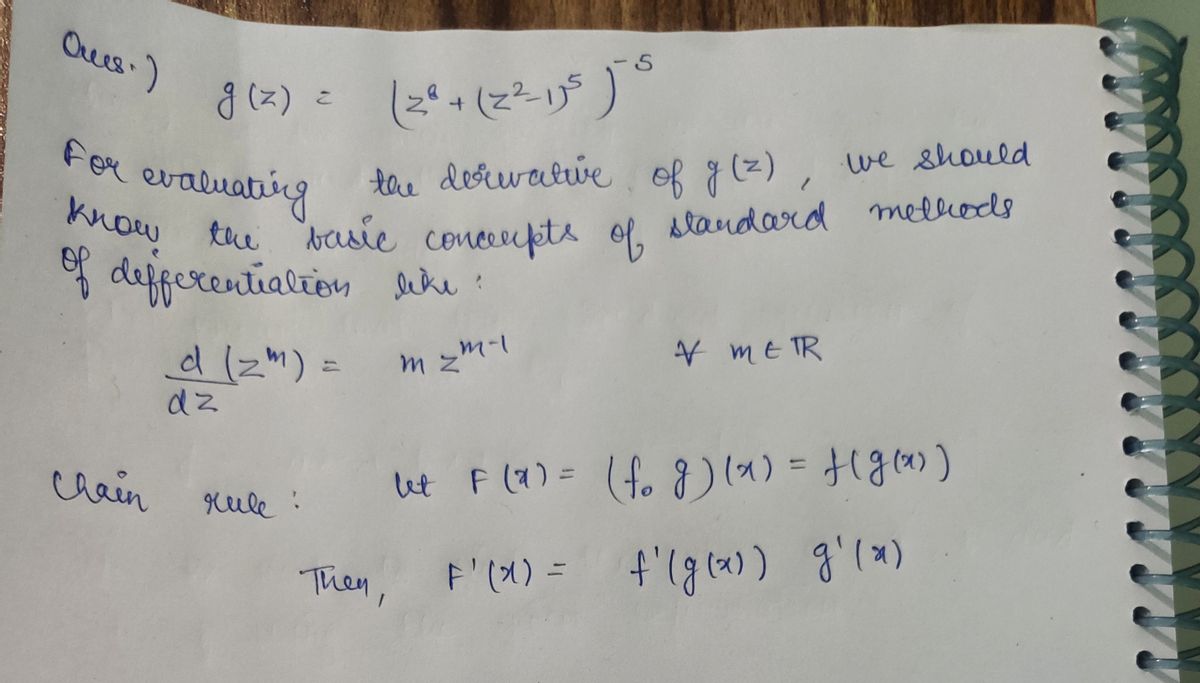 Ques.)
g(z) = (z⁸ + (z²-1)⁵)⁻⁵
For evaluating the derivative of g(z), we should
know the basic concepts of standard methods
of differentiation like :
d/dz (zᵐ) = m zᵐ⁻¹ ∀ m ∈ ℝ
Chain rule : let F(x) = (f∘g)(x) = f(g(x))
Then, F'(x) = f'(g(x)) g'(x)